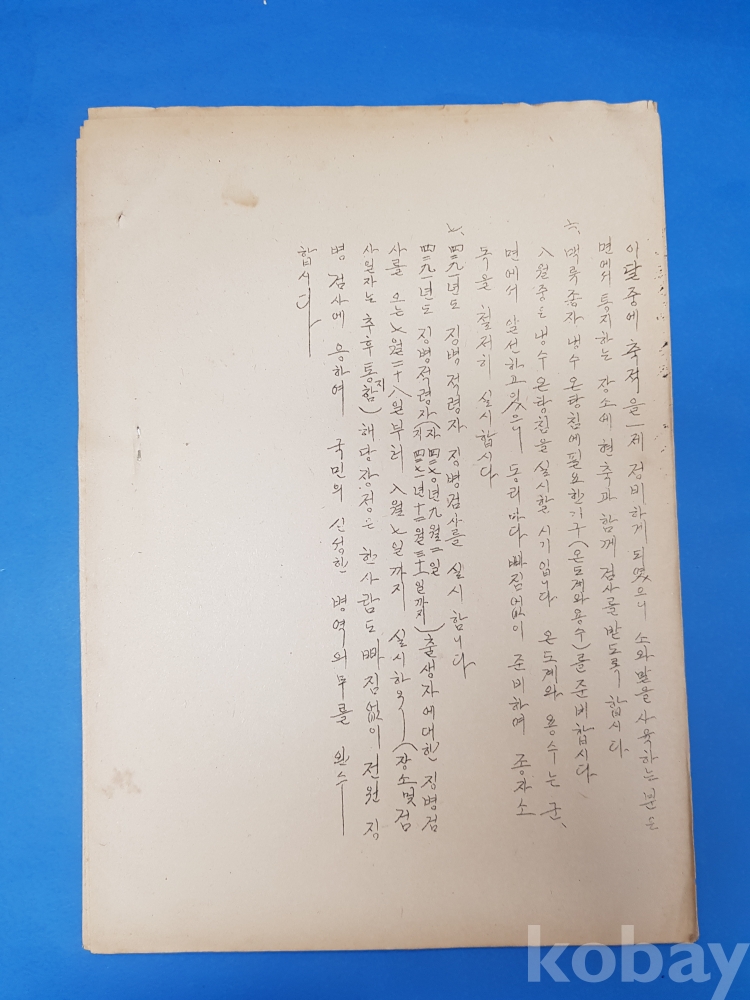 이달중에 축적을 一제 정비하게 되였으니 소와 말을 사육하는 분은
면에서 통지하는 장소에 현축과 함께 검사를 받도록 합시다
六、맥류종자 냉수온탕침에 필요한 기구(온도계와 용수)를 준비합시다
八월중은 냉수온탕침을 실시할 시기입니다 온도계와 용수는 군、
면에서 알선하고 있으니 동리마다 빠짐없이 준비하여 종자소
독을 철저히 실시합시다
七、四二九一년도 징병적령자 징병검사를 실시 합니다
四二九一년도 징병적령자(자 四二七○년 九월 一일
지 四二七一년 十二월 三十一일까지)출생자에 대한 징병검
사를 오는 七월 二十八일부터 八월 七일까지 실시하오—(장소 및 검
사일자는 추후 통지함) 해당장정은 한사람도 빠짐없이 전원 징
병 검사에 응하여 국민의 신성한 병역의무를 완수—
합시다—
kobay